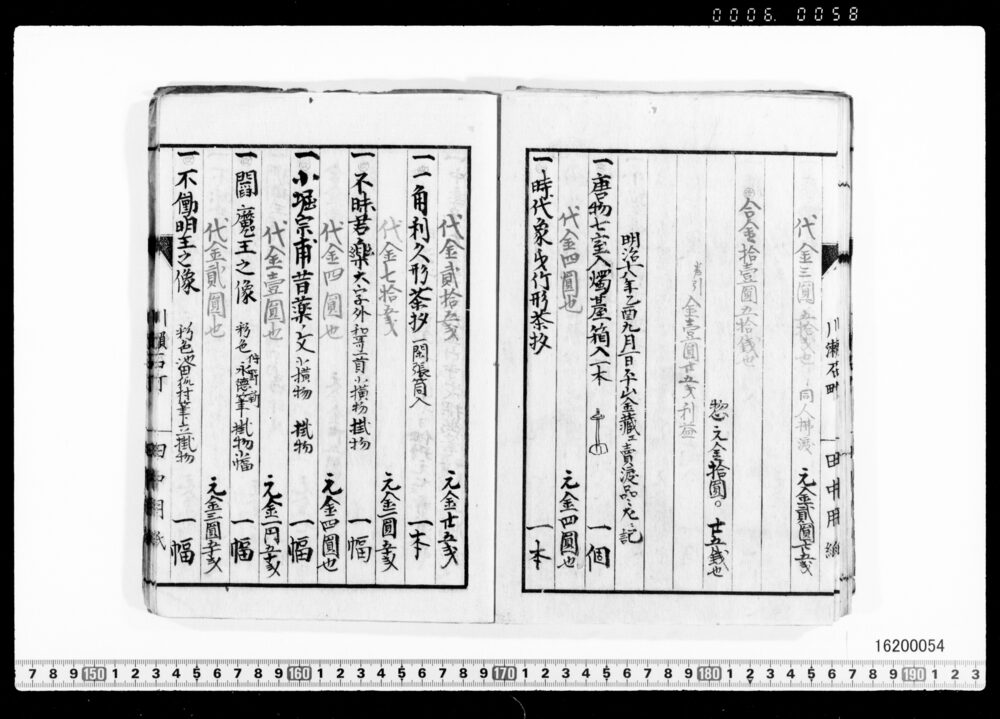 0006 0058
代金三圓五拾戔也 同人拂渡 元金貳圓廿五戔
合金拾壹圓五拾錢也
惣元金拾圓。廿五錢也
差引 金壹圓廿五戔利益
明治十八年乙酉九月一日平山金藏エ賣渡品之記
一唐物七宝入燭䑓箱入一本 一個
代金四圓也 元金四圓也
一時代象牙竹形茶抄 一本
代金貳拾五戔 元金廿五戔
一一角利久形茶抄 一閑張筒入 一本
代金七拾五戔 元金一圓五戔
一不昧君樂大字外和哥二首小橫物掛物 一幅
代金四圓也 元金四圓也
一小堀宗甫昔藥ノ文 小橫物 掛物 一幅
代金壹圓也 元金一円五戔
一閻魔王之像 彩色 狩野 永德筆掛物小幅 一幅
代金貳圓也 元金三圓五戔
一不働明王之像 彩色 掛物 一幅
川瀬石町 田中用紙
川瀬石町 田中用紙
16200054
7 8 9 150 1 2 3 4 5 6 7 8 9 160 1 2 3 4 5 6 7 8 9 170 1 2 3 4 5 6 7 8 9 180 1 2 3 4 5 6 7 8 9 190 1 2 3